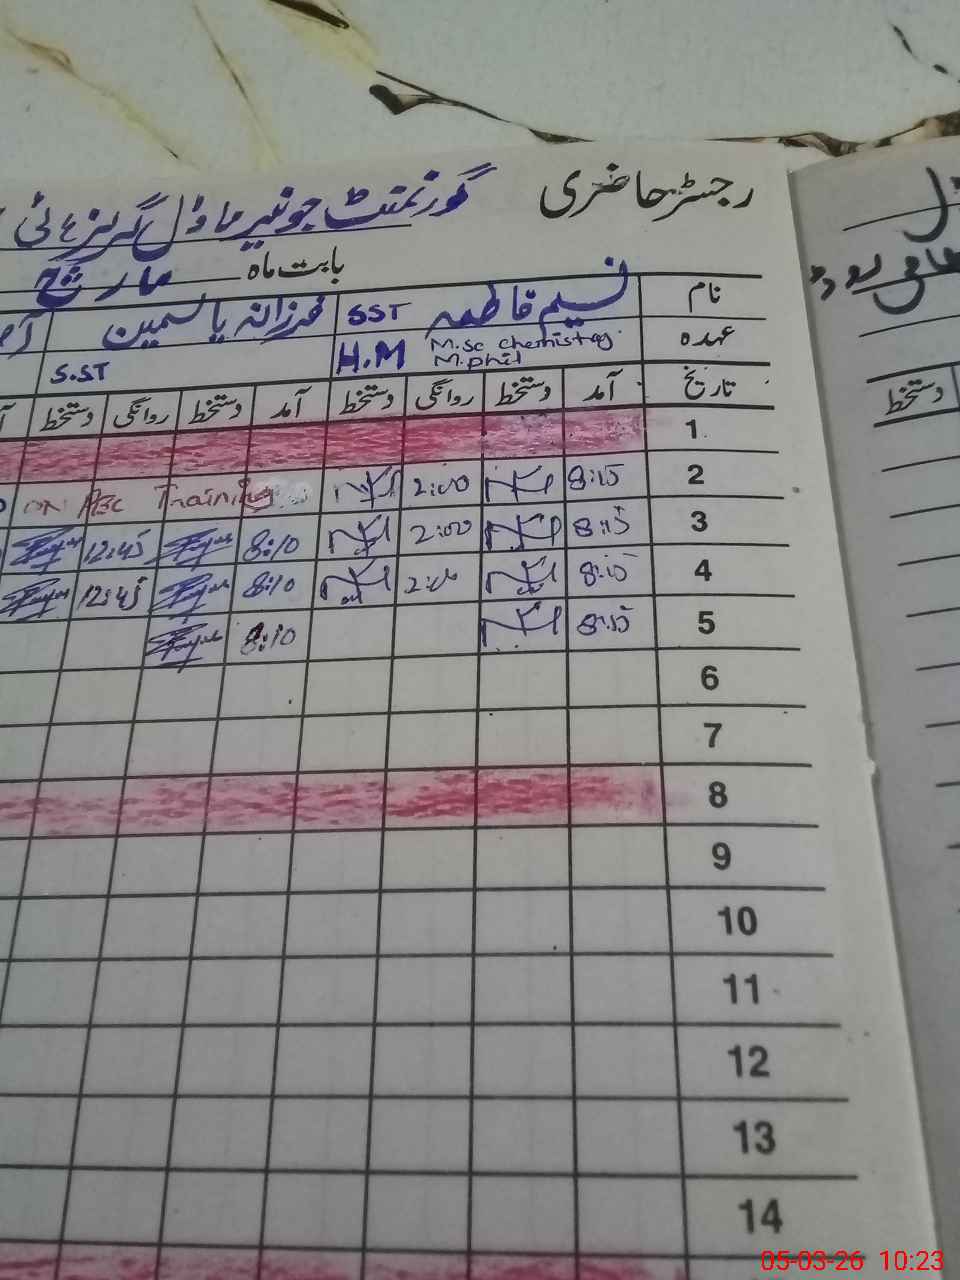 رجسٹر حاضری گورنمنٹ جونیر ماڈل گرلز ہائی
بابت ماہ مارچ
نام نسیم فاطمہ SST فرزانہ یاسمین
عہدہ M.sc chemistry M.phil H.M S.ST
تاریخ آمد دستخط روانگی دستخط آمد دستخط روانگی دستخط
1
2 8:15 2:00 ON Training
3 8:15 2:00 8:10 12:45
4 8:15 2:00 8:10 12:45
5 8:15 8:10
6
7
8
9
10
11
12
13
14
دستخط
05-03-26 10:23